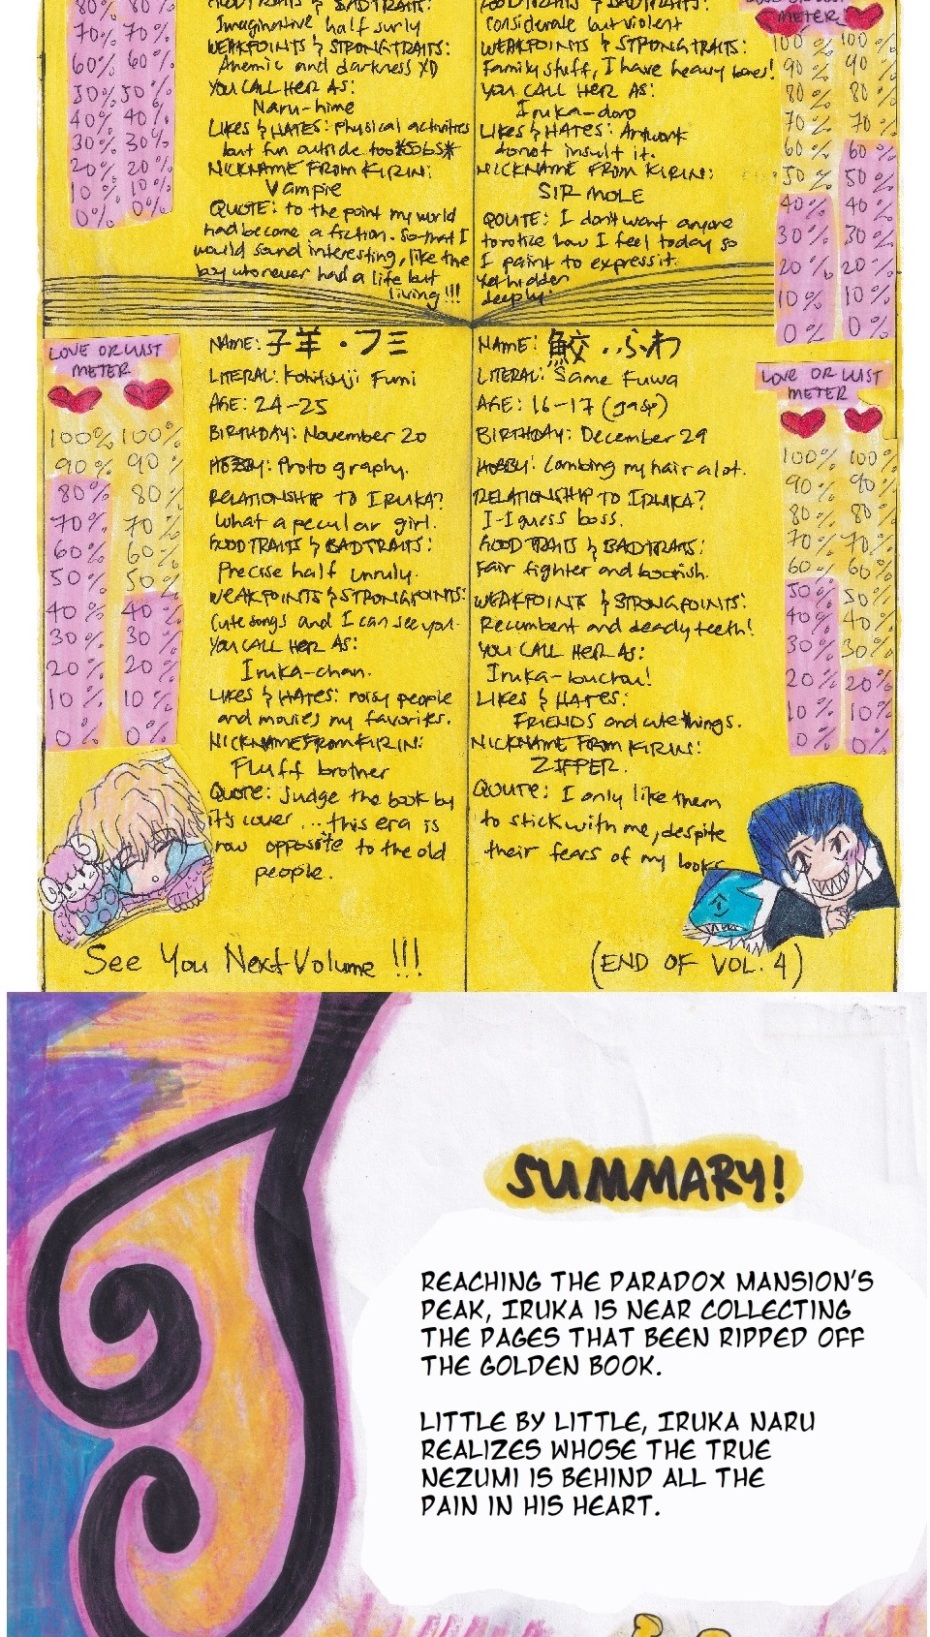 80% 80%
70% 70%
60% 60%
50% 50%
40% 40%
30% 30%
20% 20%
10% 10%
0% 0%
GOOD TRAITS & BAD TRAITS:
Imaginative half surly
WEAKPOINTS & STRONG TRAITS:
Anemic and darkness XD
YOU CALL HER AS:
Naru-hime
LIKES & HATES: physical activities
but fun outside too *SOBS*
NICKNAME FROM KIRIN:
Vampie
QUOTE: to the point my world
had become a fiction. So that I
would sound interesting, like the
boy who never had a life but
living!!!
GOOD TRAITS & BAD TRAITS:
Considerate but violent
WEAKPOINTS & STRONG TRAITS:
Family stuff, I have heavy bones!
YOU CALL HER AS:
Iruka-dono
LIKES & HATES: Artwork
do not insult it.
NICKNAME FROM KIRIN:
SIR MOLE
QOUTE: I don't want anyone
to notice how I feel today so
I paint to express it.
Yet hidden
deeply.
LOVE OR LUST
METER
100% 100%
90% 90%
80% 80%
70% 70%
60% 60%
50% 50%
40% 40%
30% 30%
20% 20%
10% 10%
0% 0%
LOVE OR LUST
METER
100% 100%
90% 90%
80% 80%
70% 70%
60% 60%
50% 50%
40% 40%
30% 30%
20% 20%
10% 10%
0% 0%
NAME: 子羊・フミ
LITERAL: Kohitsuji Fumi
AGE: 24-25
BIRTHDAY: November 20
HOBBY: Photography.
RELATIONSHIP TO IRUKA?
What a peculiar girl.
GOOD TRAITS & BAD TRAITS:
Precise half unruly.
WEAKPOINTS & STRONGPOINTS:
Cute songs and I can see you.
YOU CALL HER AS:
Iruka-chan.
LIKES & HATES: noisy people
and movies my favorites.
NICKNAME FROM KIRIN:
Fluff brother
QUOTE: Judge the book by
it's cover ... this era is
now opposite to the old
people.
NAME: 鮫・ふわ
LITERAL: Same Fuwa
AGE: 16-17 (gasp)
BIRTHDAY: December 29
HOBBY: Combing my hair a lot.
RELATIONSHIP TO IRUKA?
I-I guess boss.
GOOD TRAITS & BAD TRAITS:
Fair fighter and boorish.
WEAKPOINTS & STRONGPOINTS:
Recumbent and deadly teeth!
YOU CALL HER AS:
Iruka-buchou!
LIKES & HATES:
FRIENDS and cute things.
NICKNAME FROM KIRIN:
ZIPPER.
QOUTE: I only like them
to stick with me, despite
their fears of my looks
LOVE OR LUST
METER
100% 100%
90% 90%
80% 80%
70% 70%
60% 60%
50% 50%
40% 40%
30% 30%
20% 20%
10% 10%
0% 0%
See You Next Volume !!!
(END OF VOL. 4)
SUMMARY!
REACHING THE PARADOX MANSION'S
PEAK, IRUKA IS NEAR COLLECTING
THE PAGES THAT BEEN RIPPED OFF
THE GOLDEN BOOK.
LITTLE BY LITTLE, IRUKA NARU
REALIZES WHOSE THE TRUE
NEZUMI IS BEHIND ALL THE
PAIN IN HIS HEART.